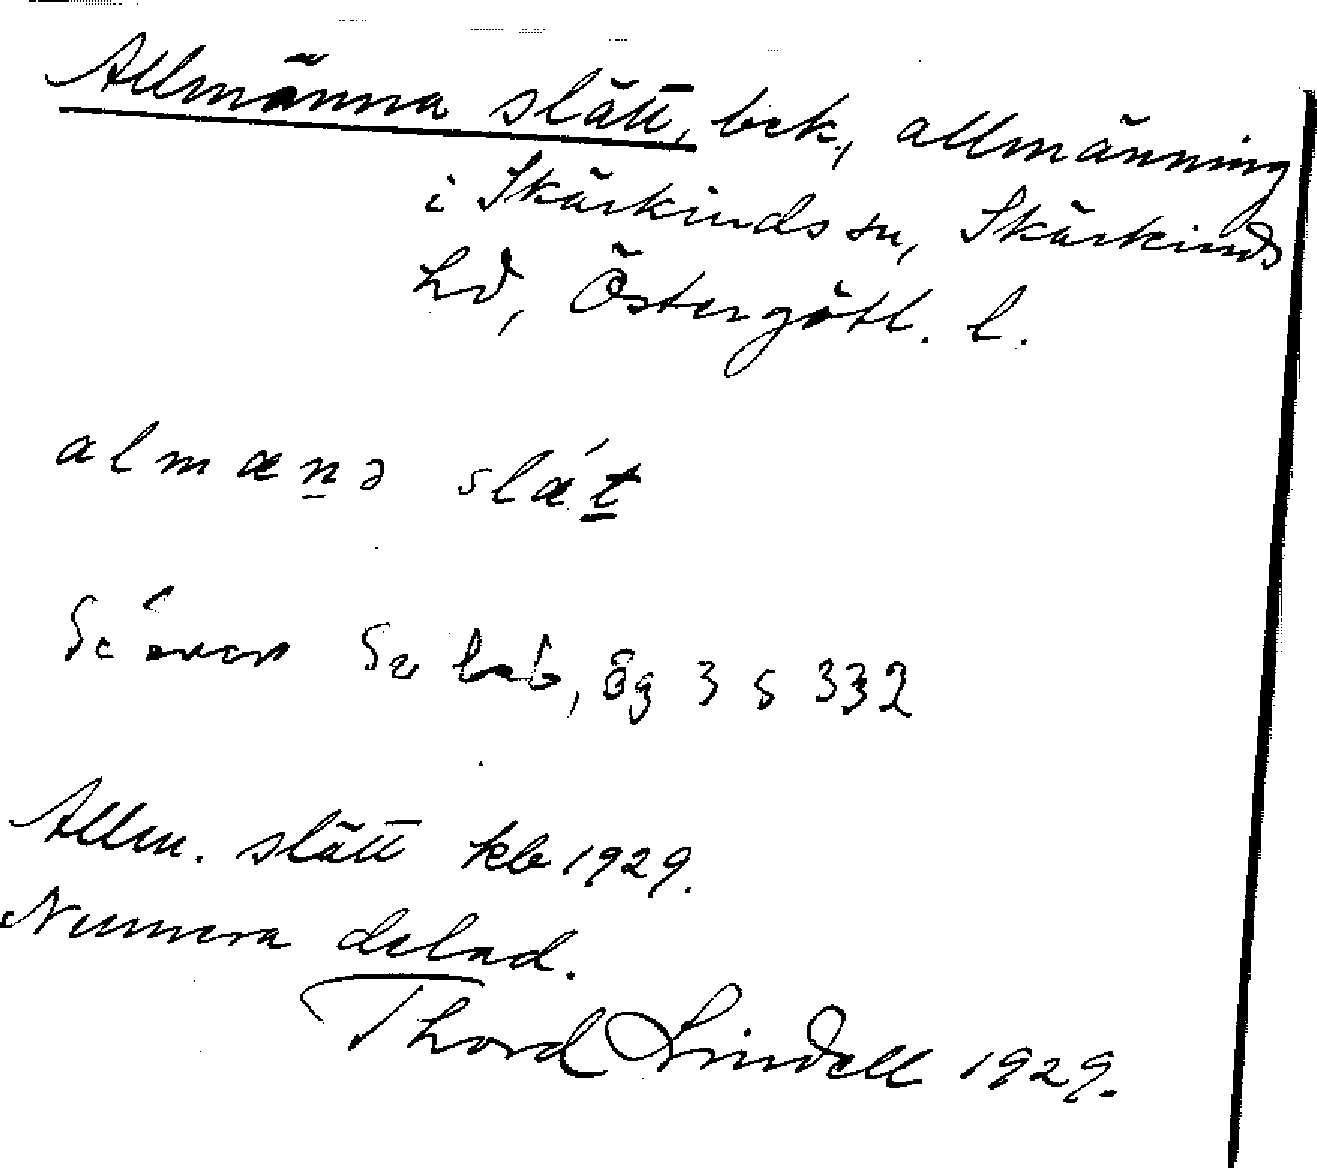 Allmänna slätt, bek, allmänning
i Skärkinds sn, Skärkinds
hd, Östergötl. l.
almænə slæ´t
Se även Sv beb, Ög 3 s 332
Allm. slätt keb 1929.
Numera delad.
Thord Lindell 1929.